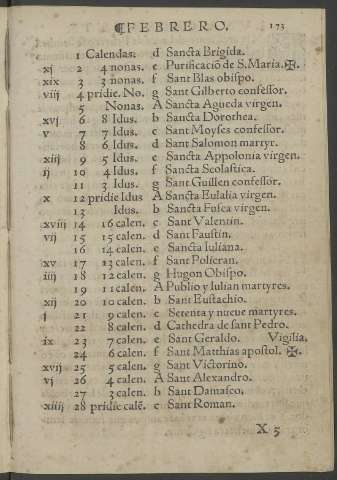 ¶FEBRERO. 173
1 Calendas. d Sancta Brigida.
xj 2 4 nonas. e Purificaciō de S. Maria.✠.
xix 3 3 nonas. f Sant Blas obispo.
viij 4 pridie. No. g Sant Gilberto confessor.
5 Nonas. A Sancta Agueda virgen.
xvj 6 8 Idus. b Sancta Dorothea.
v 7 7 Idus. c Sant Moyses confessor.
8 6 Idus. d Sant Salomon martyr.
xiij 9 5 Idus. e Sancta Appolonia virgen.
ij 10 4 Idus. f Sancta Scolastica.
11 3 Idus. g Sant Guillen confessor.
x 12 pridie Idus A Sancta Eulalia virgen.
13 Idus. b Sancta Fusca virgen.
xviij 14 16 calen. c Sant Valentin.
vij 15 15 calen. d Sant Faustin.
16 14 calen. e Sancta Iuliana.
xv 17 13 calen. f Sant Policran.
iiij 18 12 calen. g Hugon Obispo.
19 11 calen. A Publio y Iulian martyres.
xij 20 10 calen. b Sant Eustachio.
j 21 9 calen. c Setenta y nueue martyres.
22 8 calen. d Cathedra de sant Pedro.
ix 23 7 calen. e Sant Geraldo. Vigilia.
24 6 calen. f Sant Matthias apostol. ✠.
xvij 25 5 calen. g Sant Victorino.
vj 26 4 calen. A Sant Alexandro.
27 3 calen. b Sant Damasco.
xiiij 28 pridie calē. c Sant Roman.
X 5